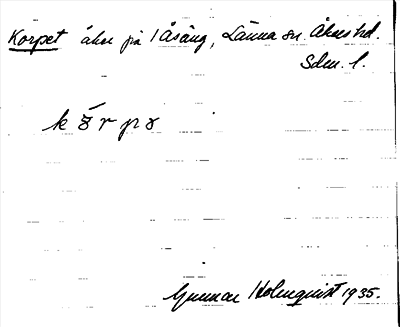 Korpet åker på Åsäng, Länna sn. Åkers hd.
Sdm. l.
Gunnar Holmquist 1935.